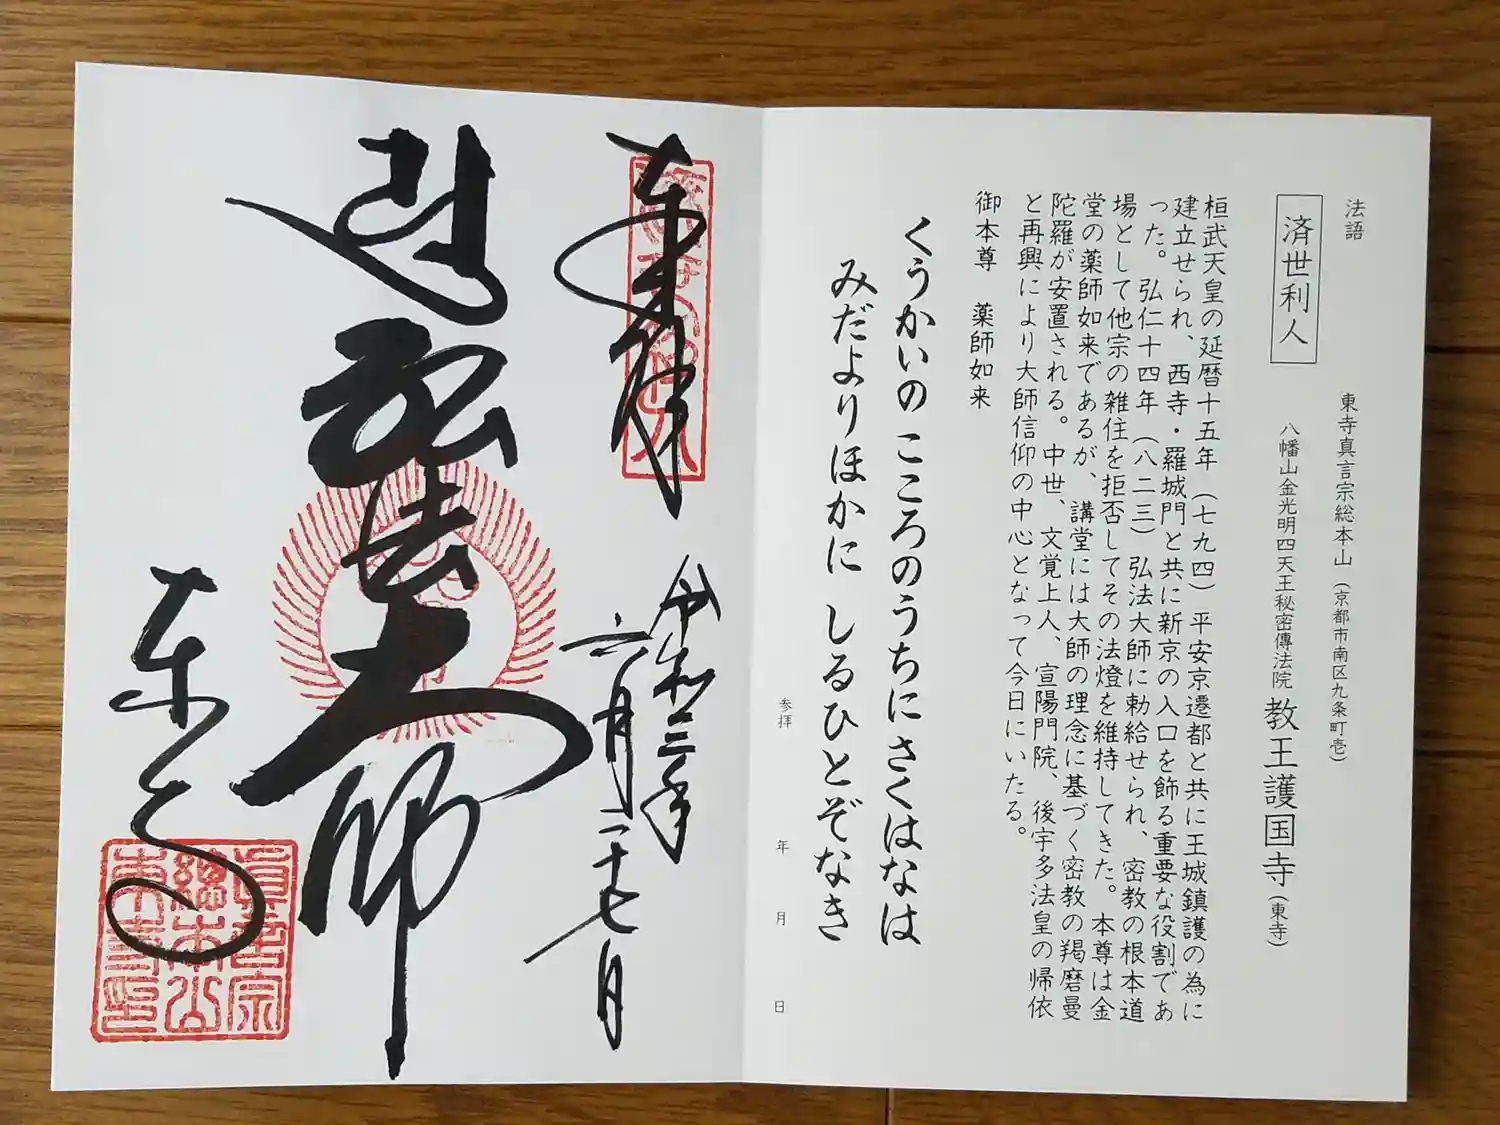 法語
東寺真言宗総本山(京都市南区九条町壱)
済世利人
八幡山金光明四天王秘密傳法院 教王護国寺(東寺)
桓武天皇の延暦十五年(七九四)平安京遷都と共に王城鎮護の為に
建立せられ、西寺・羅城門と共に新京の入口を飾る重要な役割であ
った。弘仁十四年(八二三)弘法大師に勅給せられ、密教の根本道
場として他宗の雑住を拒否してその法燈を維持してきた。本尊は金
堂の薬師如来であるが、講堂には大師の理念に基づく密教の羯磨曼
陀羅が安置される。中世、文覚上人、宣陽門院、後宇多法皇の帰依
と再興により大師信仰の中心となって今日にいたる。
御本尊 薬師如来
くうかいの こころのうちにさくはなは
みだよりほかに しるひとぞなき
参拝 年 月 日
奉拝
令和三年
六月二十七日
弘法大師
東寺
真言宗
總本山
東寺印